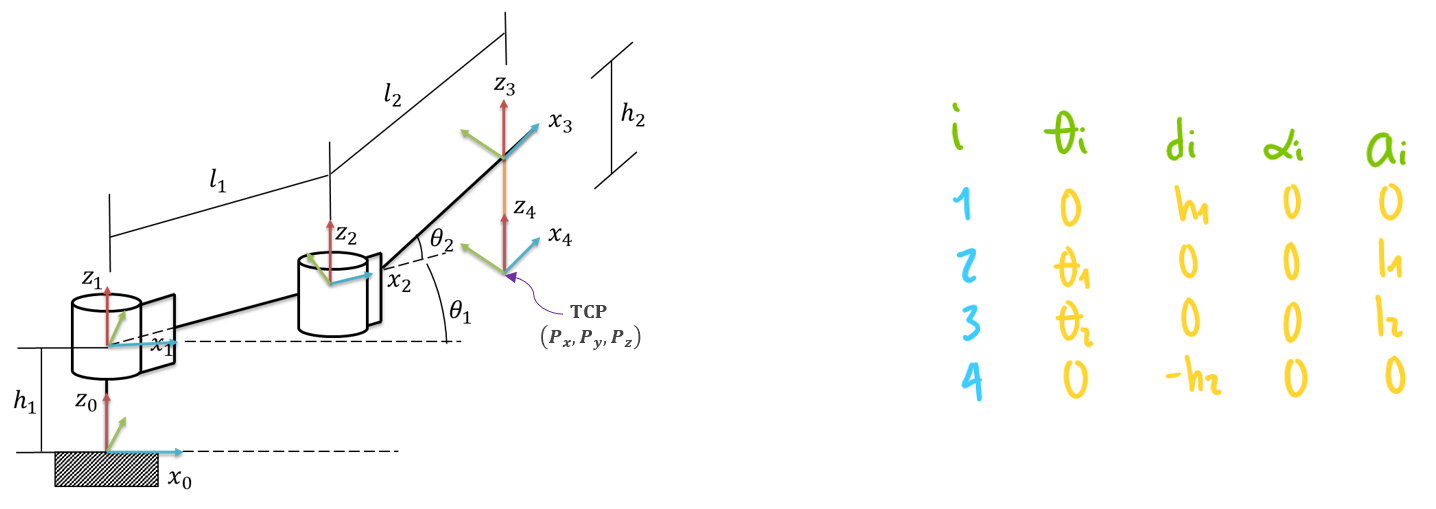 l₂
z₃
x₃
h₂
l₁
z₄
x₄
z₂
θ₂
x₂
z₁
θ₁
x₁
TCP
(Pₓ, Pᵧ, P_z)
h₁
z₀
x₀
i θi di αi ai
1 0 h₁ 0 0
2 θ₁ 0 0 l₁
3 θ₂ 0 0 l₂
4 0 -h₂ 0 0